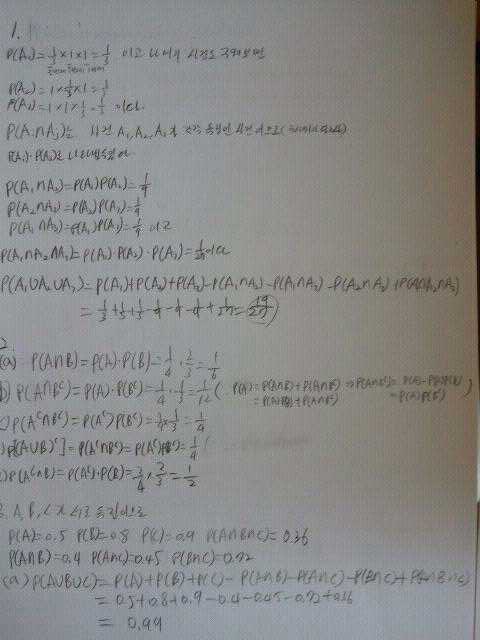 1.
P(A₁)=1/3×1×1=1/3 이고
P(A₂)=1×1/3×1=1/3
P(A₃)=1×1×1/3=1/3 이다.
P(A₁∩A₂)는 사건 A₁, A₂, A₃
P(A₁)·P(A₂)로
P(A₁∩A₂)=P(A₁)P(A₂)=1/9
P(A₂∩A₃)=P(A₂)P(A₃)=1/9
P(A₁∩A₃)=P(A₁)P(A₃)=1/9 이고
P(A₁∩A₂∩A₃)=P(A₁)·P(A₂)·P(A₃)=1/27이다
P(A₁∪A₂∪A₃)=P(A₁)+P(A₂)+P(A₃)-P(A₁∩A₂)-P(A₁∩A₃)-P(A₂∩A₃)+P(A₁∩A₂∩A₃)
=1/3+1/3+1/3-1/9-1/9-1/9+1/27=19/27
2.
(a) P(A∩B)=P(A)·P(B)=1/4·2/3=1/6
b) P(A∩Bᶜ)=P(A)·P(Bᶜ)=1/4·1/3=1/12
) P(Aᶜ∩Bᶜ)=P(Aᶜ)P(Bᶜ)=3/4×1/3=1/4
) P[(A∪B)ᶜ]=P(Aᶜ∩Bᶜ)=P(Aᶜ)P(Bᶜ)=1/4
) P(Aᶜ∩B)=P(Aᶜ)·P(B)=3/4×2/3=1/2
3. A, B, C
P(A)=0.5 P(B)=0.8 P(C)=0.9 P(A∩B∩C)=0.36
P(A∩B)=0.4 P(A∩C)=0.45 P(B∩C)=0.72
(a) P(A∪B∪C)=P(A)+P(B)+P(C)-P(A∩B)-P(A∩C)-P(B∩C)+P(A∩B∩C)
=0.5+0.8+0.9-0.4-0.45-0.72+0.36
=0.99